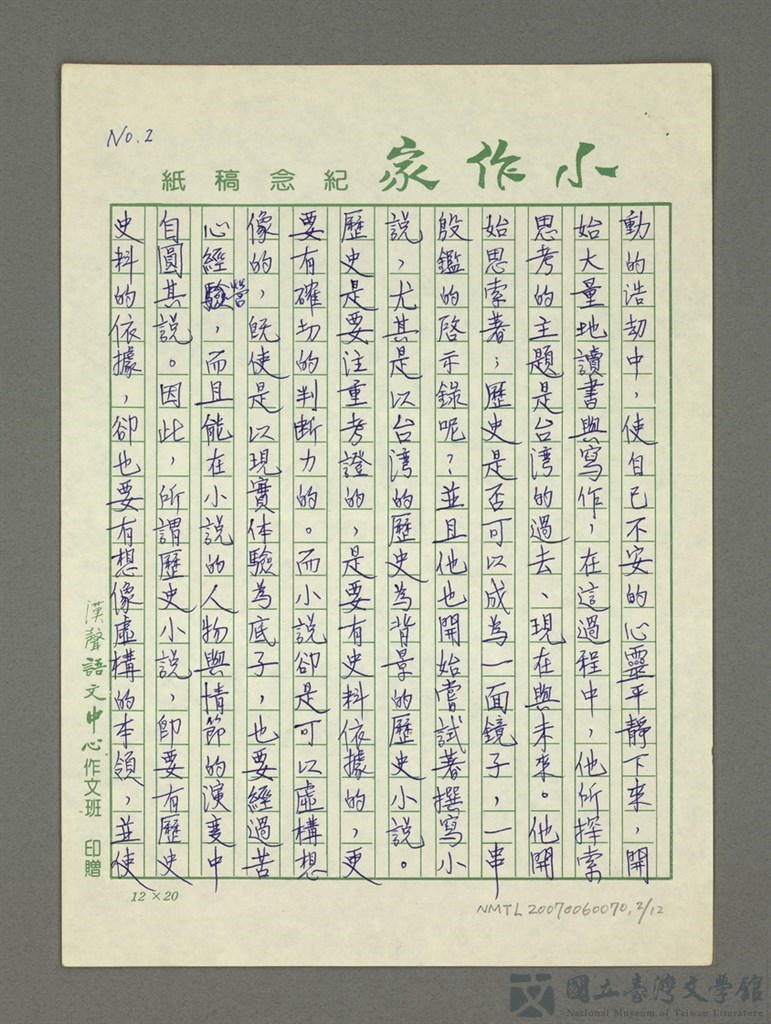 No.2
小作家 紀念稿紙
動的浩劫中，使自己不安的心靈平靜下來，開
始大量地讀書與寫作，在這過程中，他所探索
思考的主題是台湾的過去、現在與未來。他開
始思索著；歷史是否可以成為一面鏡子，一串
殷鑑的啓示錄呢？並且他也開始嘗試著撰寫小
說，尤其是以台湾的歷史為背景的歷史小說。
歷史是要注重考證的，是要有史料依據的，更
要有確切的判断力的。而小說卻是可以虛構想
像的，既使是以現實体驗為底子，也要經過苦
心經營，而且能在小說的人物與情節的演变中
自圓其說。因此，所謂歷史小說，即要有歷史
史料的依據，卻也要有想像虛構的本領，並使
漢聲語文中心作文班 印贈
12×20
NMTL 20070060070, 2/12
國立臺灣文學館
National Museum of Taiwan Literature